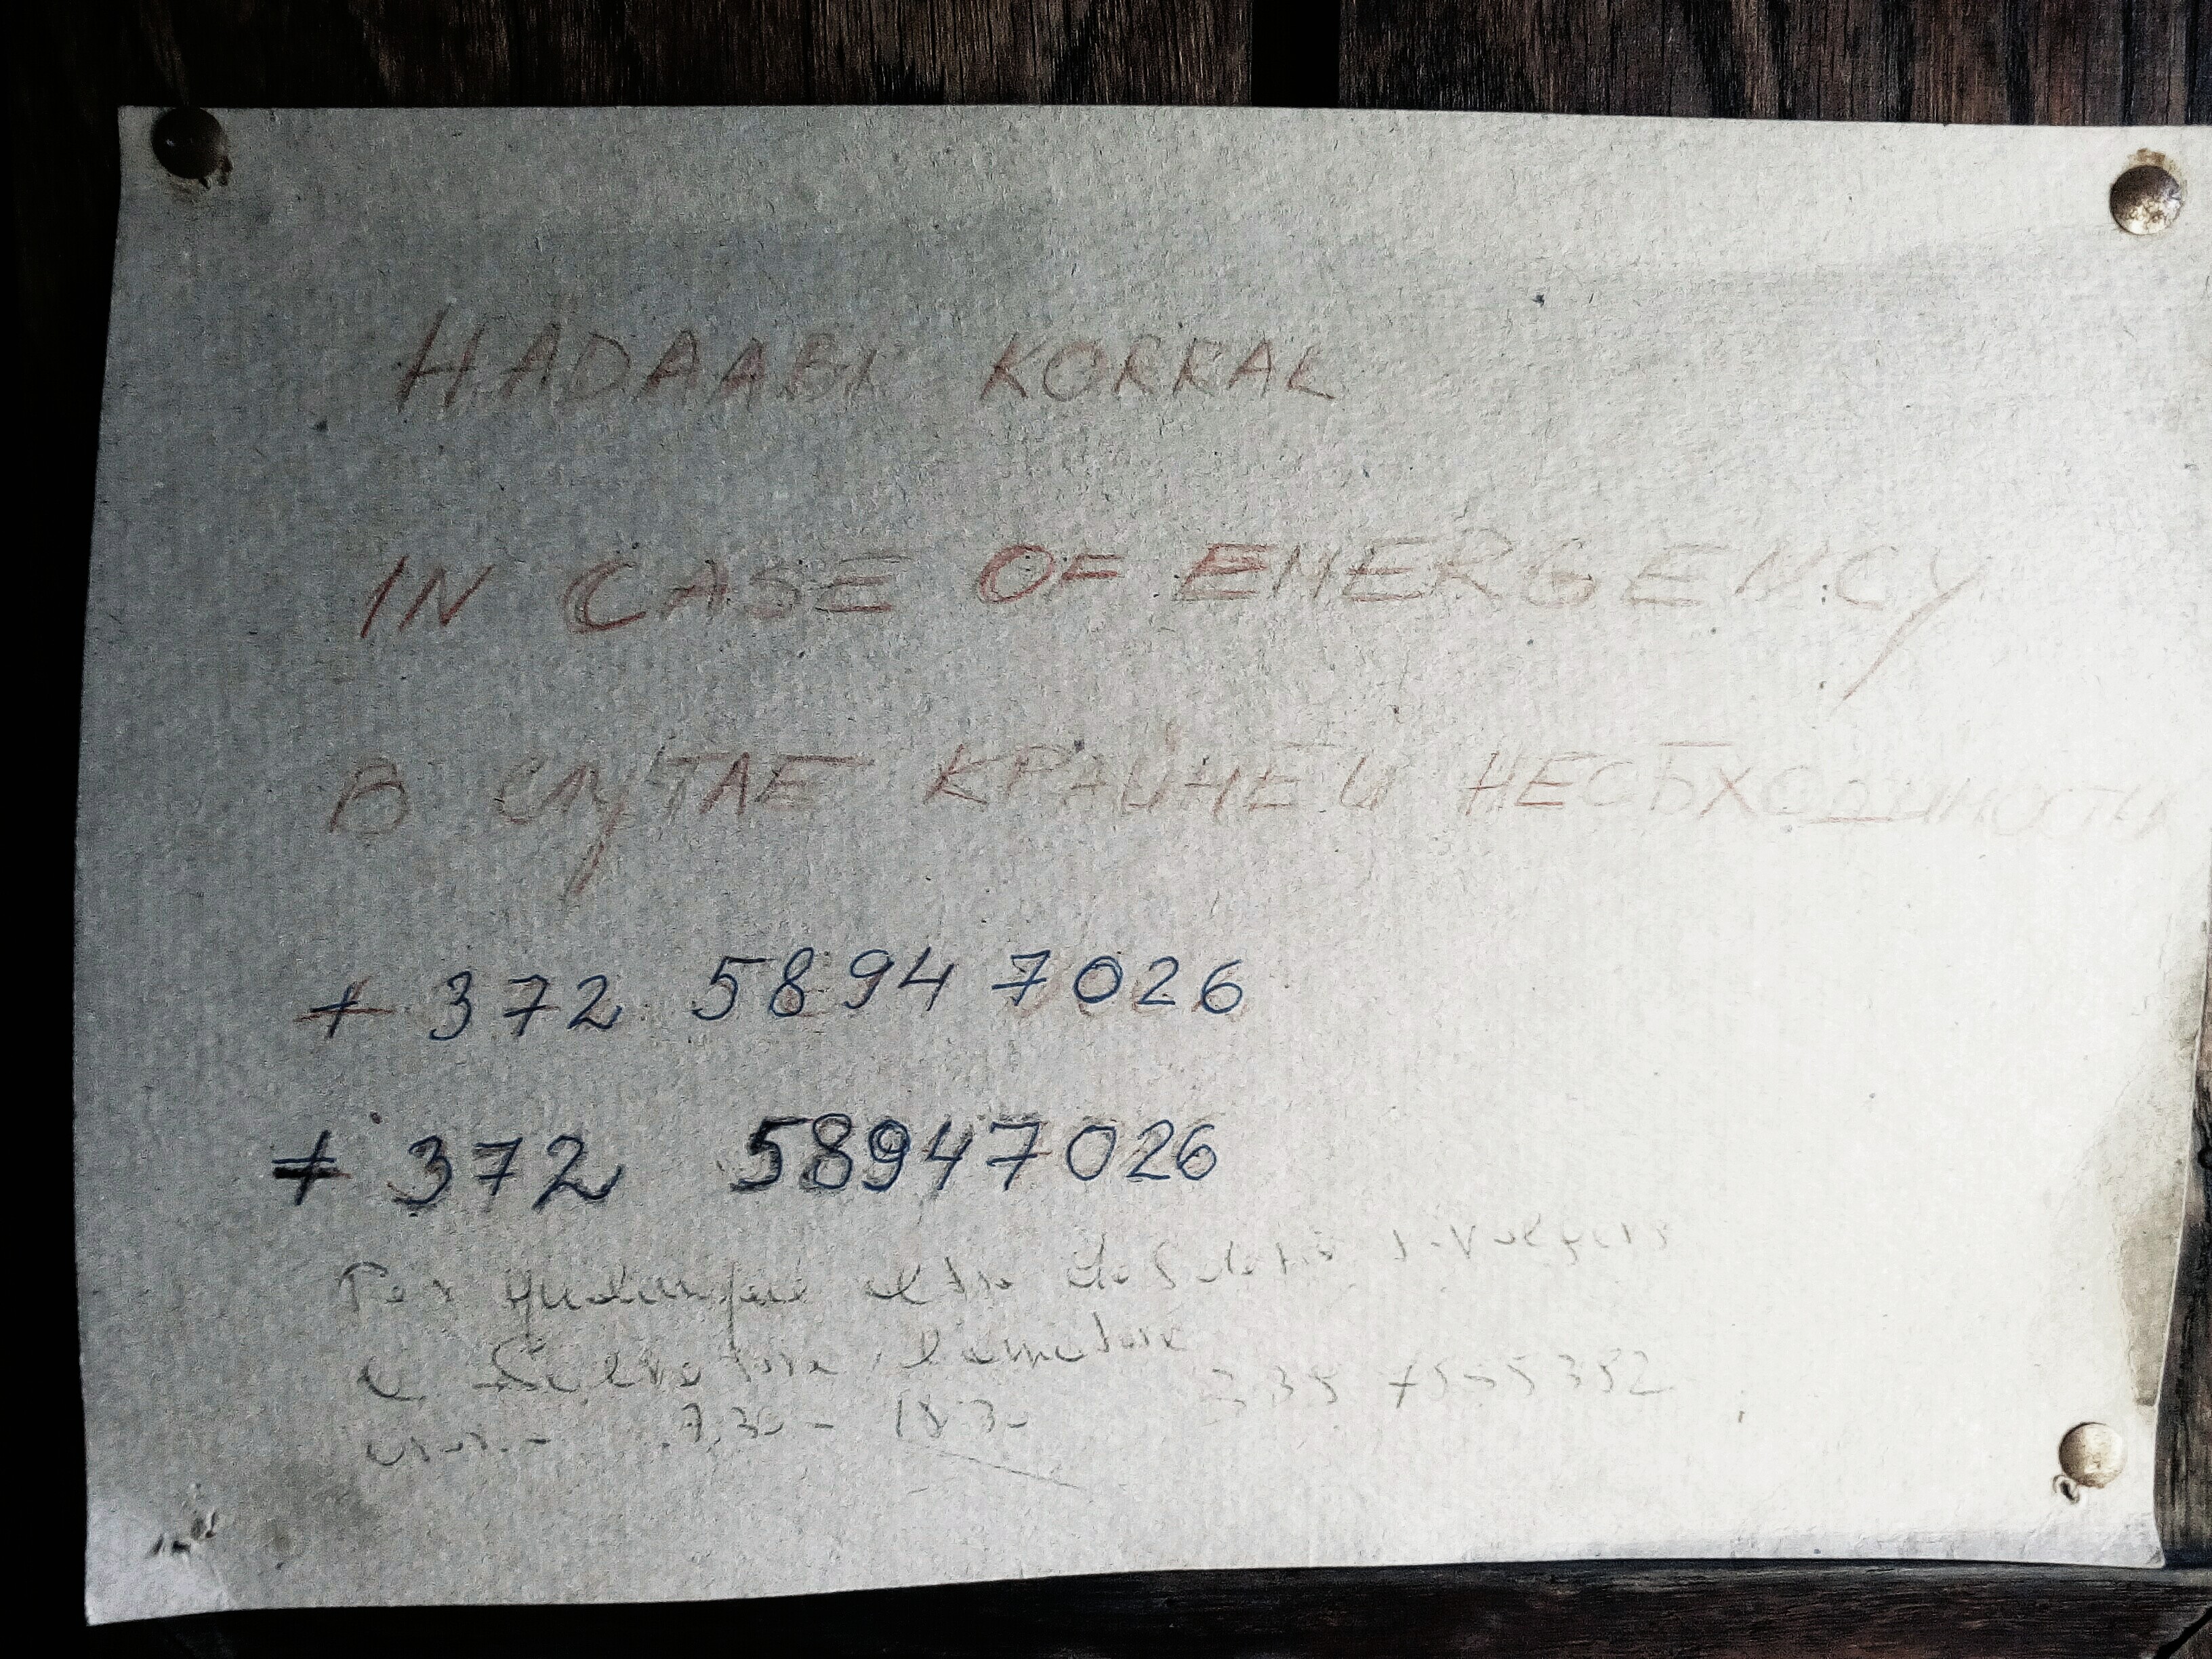 HÄDAABI KORRAL
IN CASE OF EMERGENCY
В СЛУЧАЕ КРАЙНЕЙ НЕОБХОДИМОСТИ
+ 372 5894 7026
+ 372 58947026
Per qualunque altro
7.30 - 18.30